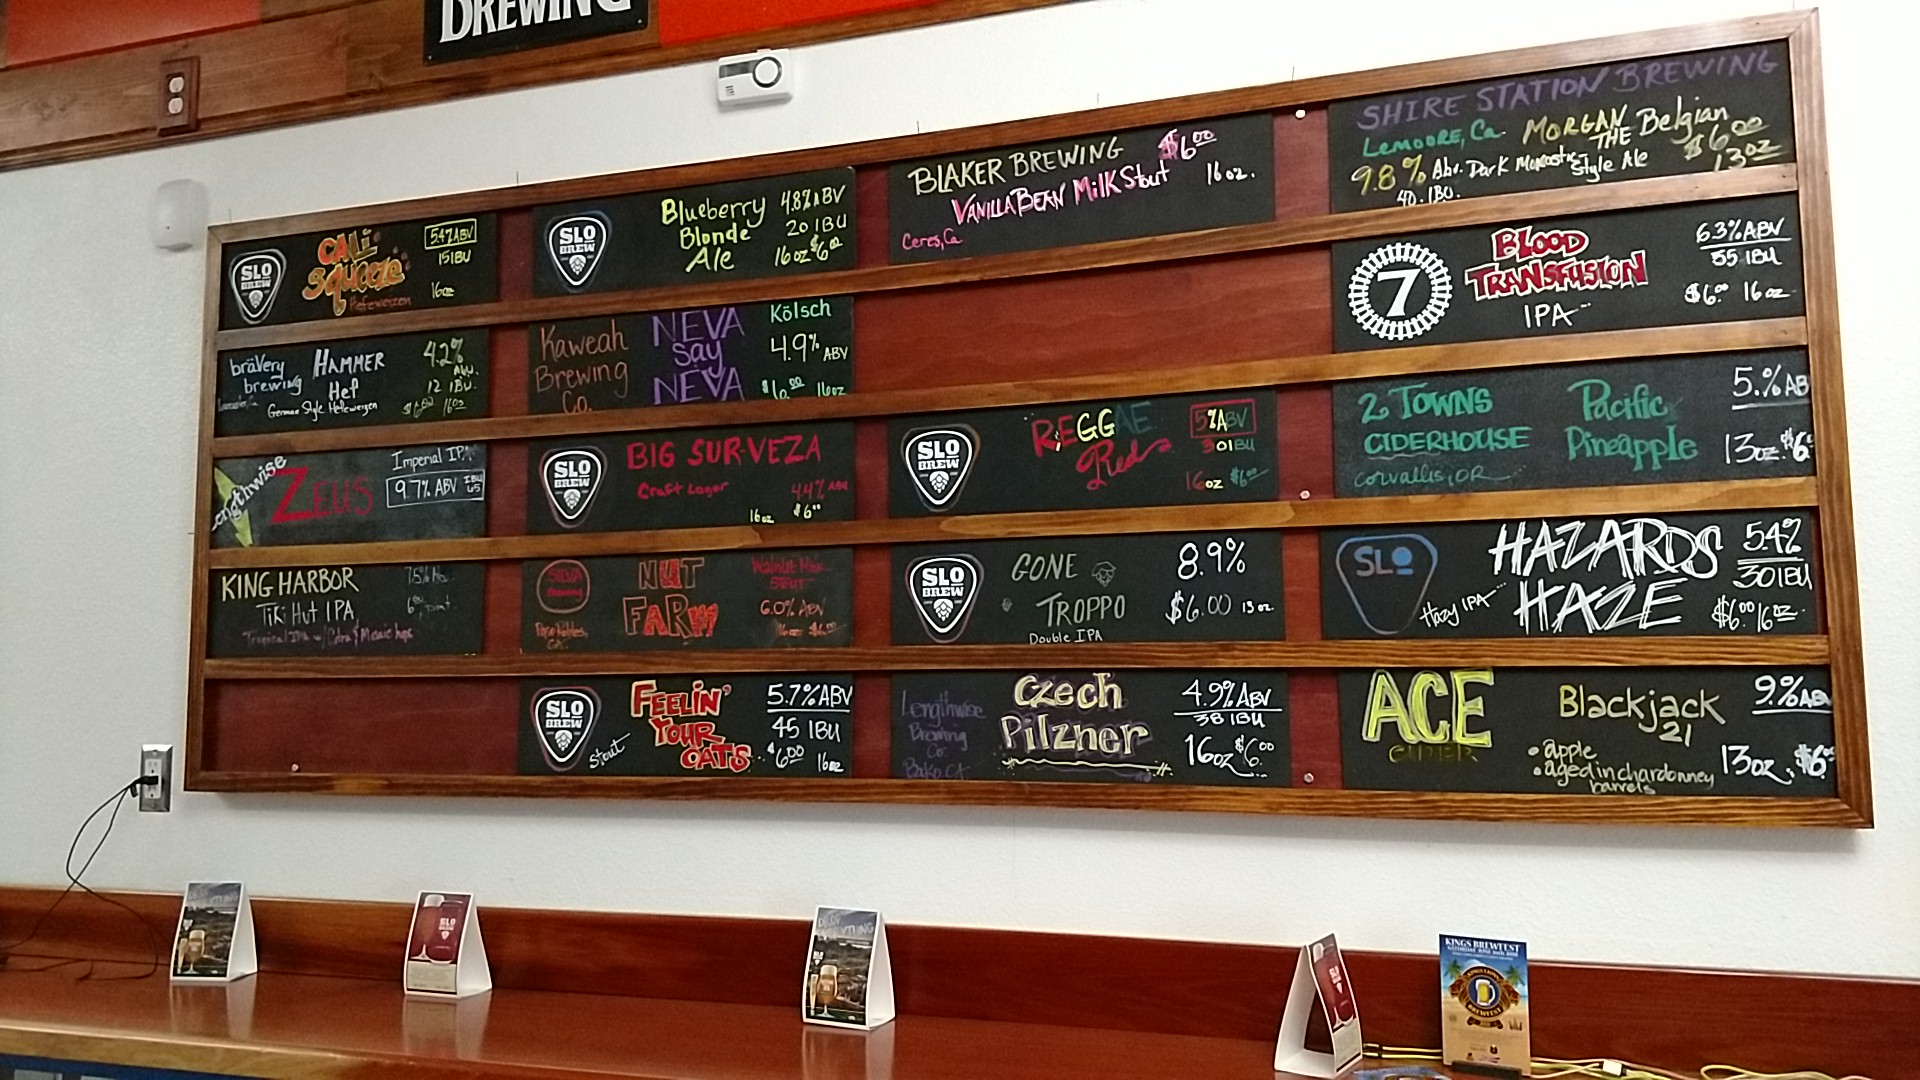 BREWING
SLO
BREW
CALi
Squeeze
Hefeweizen
5.4% ABV
15 IBU
16oz
brävery
brewing
HAMMER
Hef
German Style Hefeweizen
4.2%
Abv.
12 IBU.
16oz
Lengthwise
ZEUS
Imperial IPA
9.7% ABV
IBU
45
KING HARBOR
Tiki Hut IPA
Tropical IPA w/ Citra & Mosaic hops
SLO
BREW
Blueberry
Blonde
Ale
4.8% ABV
20 IBU
16oz $6.00
Kaweah
Brewing
Co.
NEVA
Say
NEVA
Kölsch
4.9% ABV
$6.00 16oz
SLO
BREW
BIG SUR-VEZA
Craft Lager
4.4% ABV
16oz $6.00
SILVA
Brewing
Paso Robles,
CA.
NUT
FARM
Walnut Milk
Stout
6.0% ABV
16oz $6.00
SLO
BREW
Stout
FEELIN'
YOUR
OATS
5.7% ABV
45 IBU
$6.00 16oz
BLAKER BREWING $6.00
VANILLA BEAN Milk Stout 16oz.
Ceres, Ca
SLO
BREW
REGGAE
Red
5% ABV
30 IBU
16oz $6.00
SLO
BREW
GONE
TROPPO
Double IPA
8.9%
$6.00 13oz
Lengthwise
Brewing
Co.
Bako, CA
Czech
Pilzner
4.9% ABV
38 IBU
16oz $6.00
SHIRE STATION BREWING
Lemoore, Ca. MORGAN THE Belgian
9.8% Abv. Dark Monastic Style Ale $6.00
40. IBU. 13oz
7
BLOOD
TRANSFUSION
IPA
6.3% ABV
55 IBU
$6.00 16oz
2 TOWNS
CIDERHOUSE
corvallis, OR
Pacific
Pineapple
5.% AB
13oz. $6.
SLO
Hazy IPA
HAZARDS
HAZE
5.4%
30 IBU
$6.00 16oz.
ACE
CIDER
Blackjack
21
• apple
• aged in chardonney
barrels
9.% ABV
13oz. $6.
SLO
BREW
KINGS BREWFEST